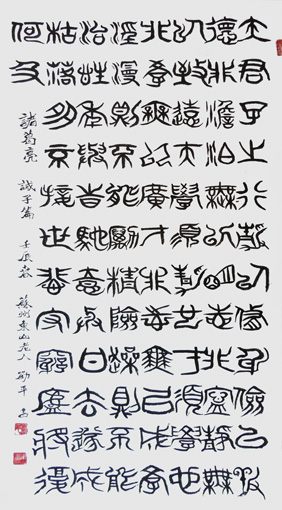 夫君子之行靜以脩身儉以養
德非澹泊無以明志非寧靜無
以致遠夫學須靜也才須學也
非學無以廣才非志無以成學
淫慢則不能勵精險躁則不能
治性年與時馳意與日去遂成
枯落多不接世悲守窮廬將復
何及
諸葛亮 誡子篇 壬辰 蘇州東山老人 勁平書